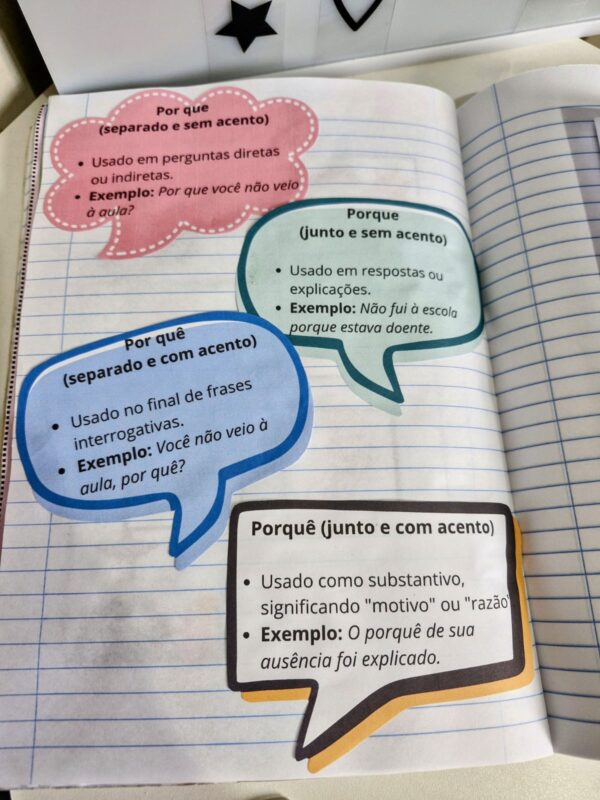 Por que
(separado e sem acento)
• Usado em perguntas diretas
ou indiretas.
• Exemplo: Por que você não veio
à aula?
Porque
(junto e sem acento)
• Usado em respostas ou
explicações.
• Exemplo: Não fui à escola
porque estava doente.
Por quê
(separado e com acento)
• Usado no final de frases
interrogativas.
• Exemplo: Você não veio à
aula, por quê?
Porquê (junto e com acento)
• Usado como substantivo,
significando "motivo" ou "razão"
• Exemplo: O porquê de sua
ausência foi explicado.